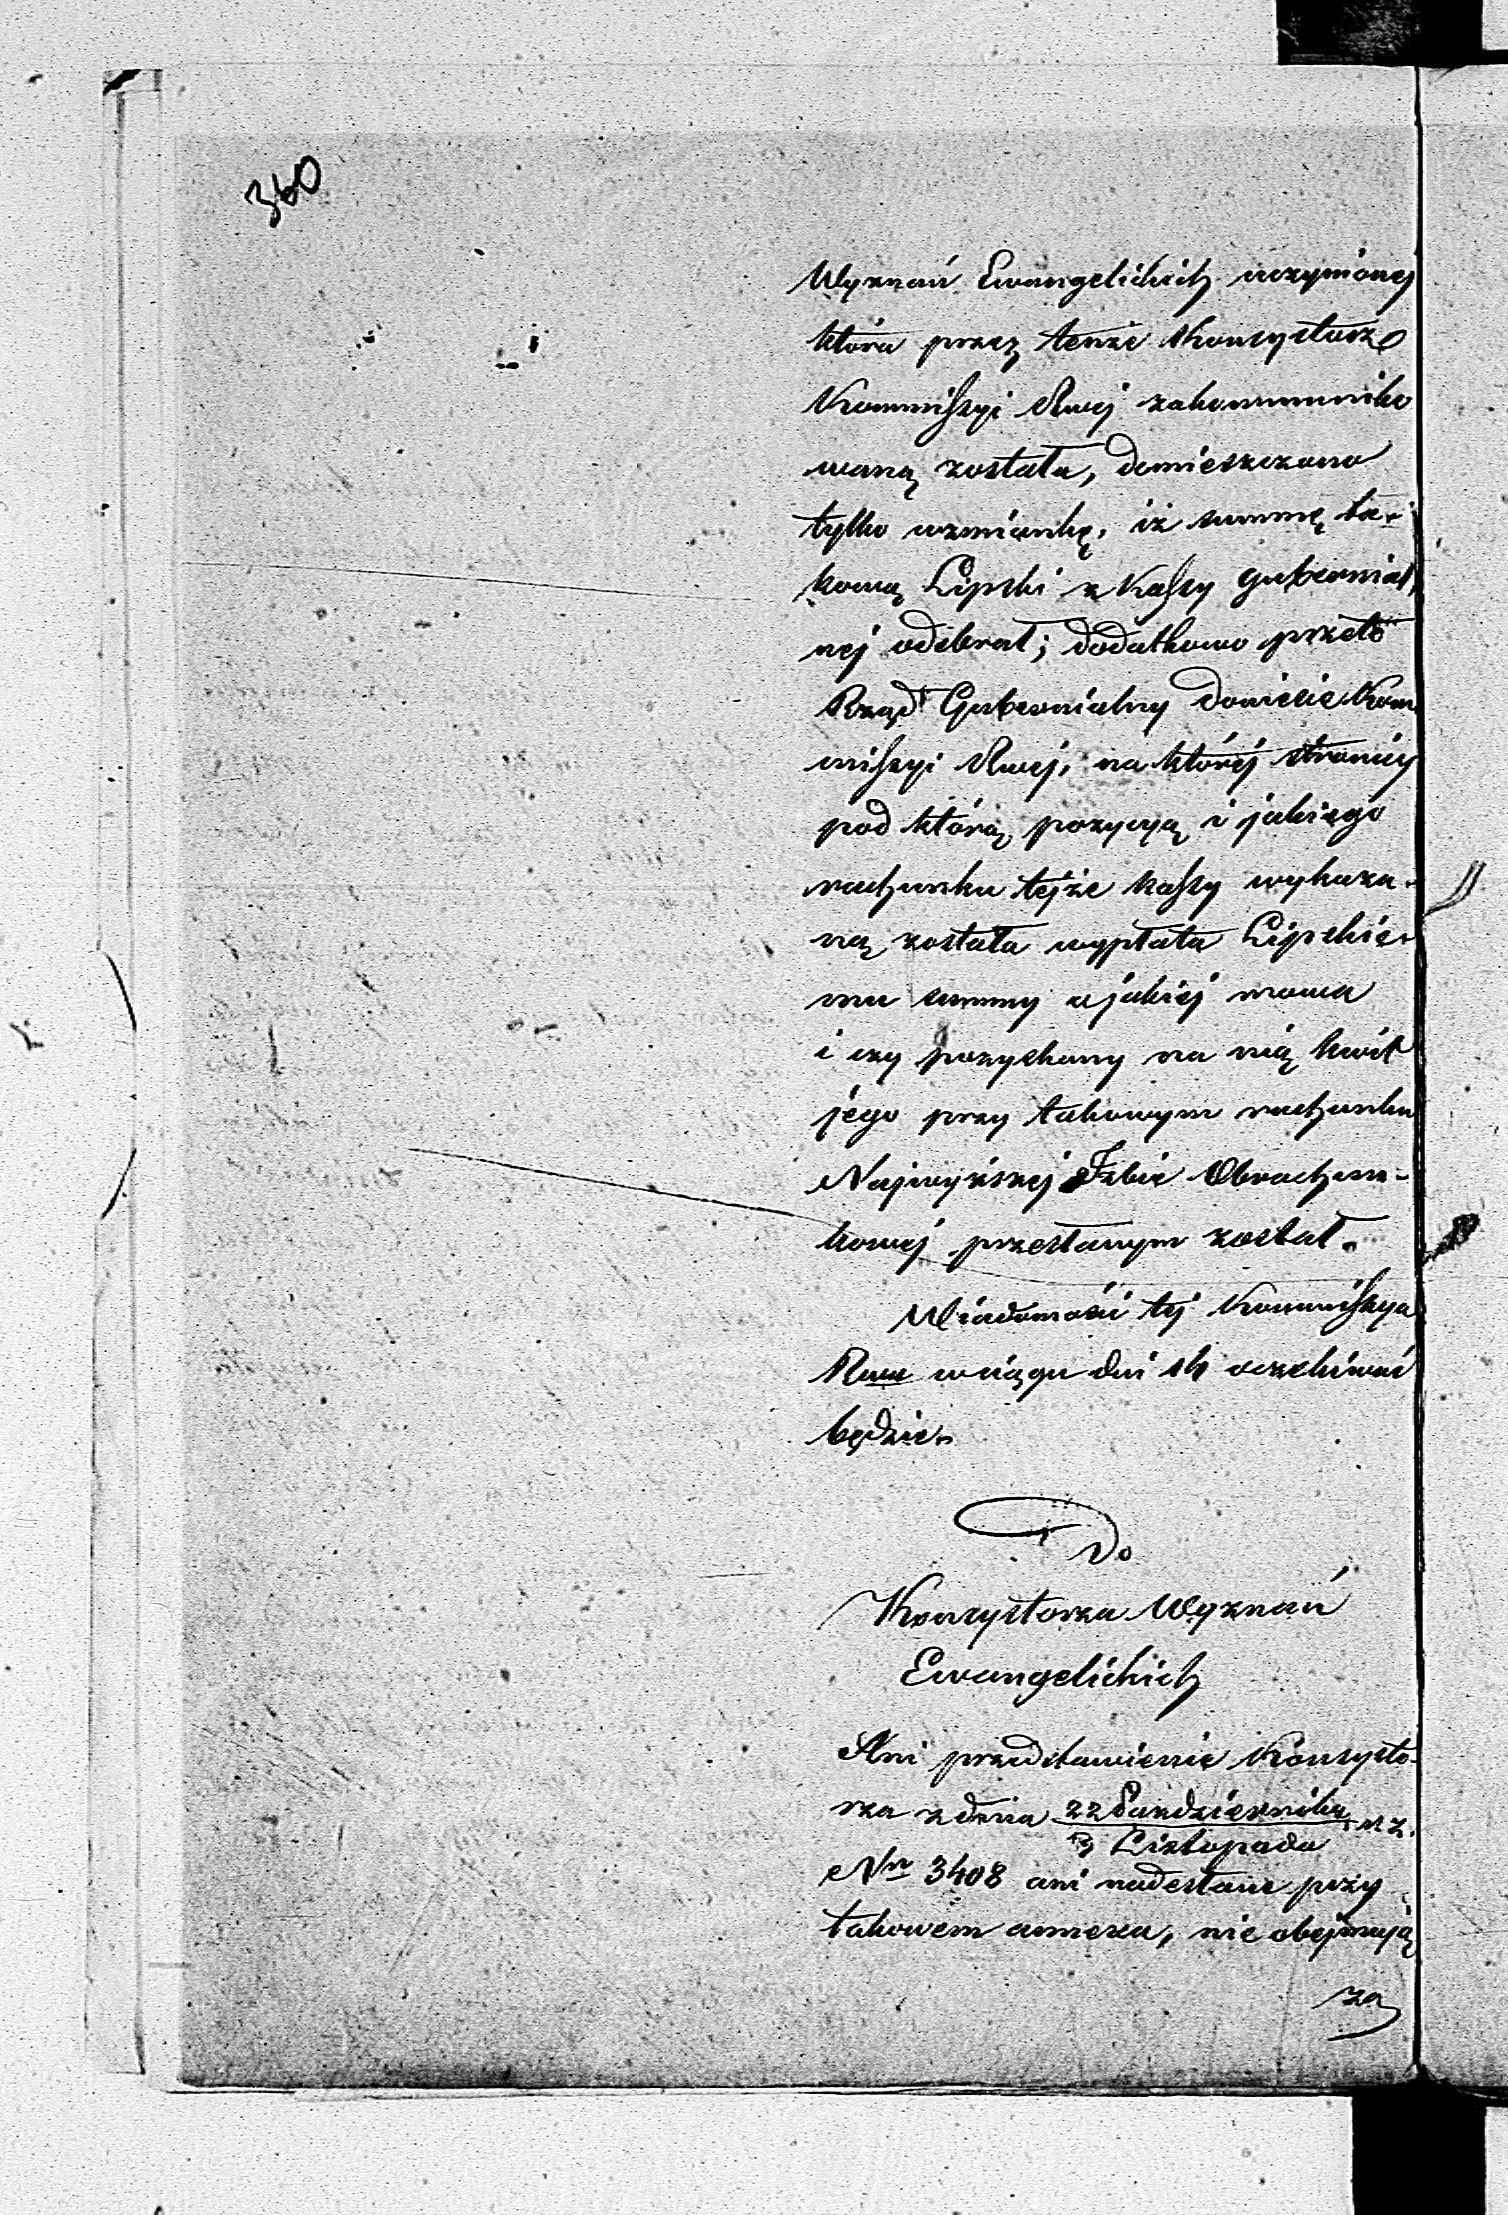 360
Wyznań Ewangelickich uczynionej
która przez tenże Konsystorz
Kommissyi Rwej zakommuniko
waną została, domieszczono
tylko wzmiankę, iż summę ta-
kową Lipski z Kassy gubernial,
nej odebrał; dodatkowo przeto
Rząd Gubernialny doniesie Kom
missyi Rwej, na której stronicy
pod którą pozycyą i jakiego
rachunku tejże kassy wykaza-
ną została wypłata Lipskie-
mu summy o jakiej mowa
i czy pozyskany na nią kwit
jego przy takowym rachunku
Najwyższej Izbie Obrachun-
kowej przesłanym został.
Wiadomości tej Kommissya
Rwa w ciągu dni 14 oczekiwać
będzie.
Do
Konsystorza Wyznań
Ewangelickich
Ani przedstawienie Konsysto-
rza z dnia 22 Października
3 Listopada r. z.
Nr 3408 ani nadesłane przy
takowem annexa, nie obejmują
za